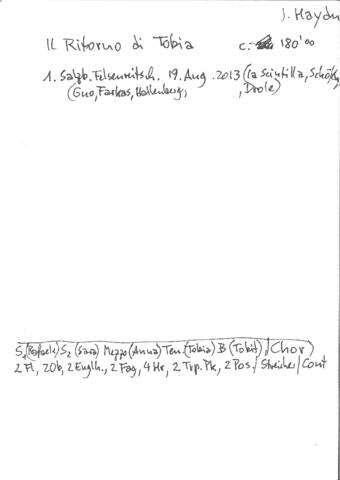 J. Haydn
Il Ritorno di Tobia c. 180'00
1. Salzb. Felsenreitsch. 19. Aug. 2013 (la Scintilla,
(Guo, Farkas, Hallenberg, , Drole)
S1 (Rafaele) S2 (Sara) Mezzo (Anna) Ten. (Tobia) B (Tobit) / Chor)
2 Fl, 2 Ob, 2 Englh., 2 Fag, 4 Hr, 2 Trp. Pk, 2 Pos. / Streicher / Cont